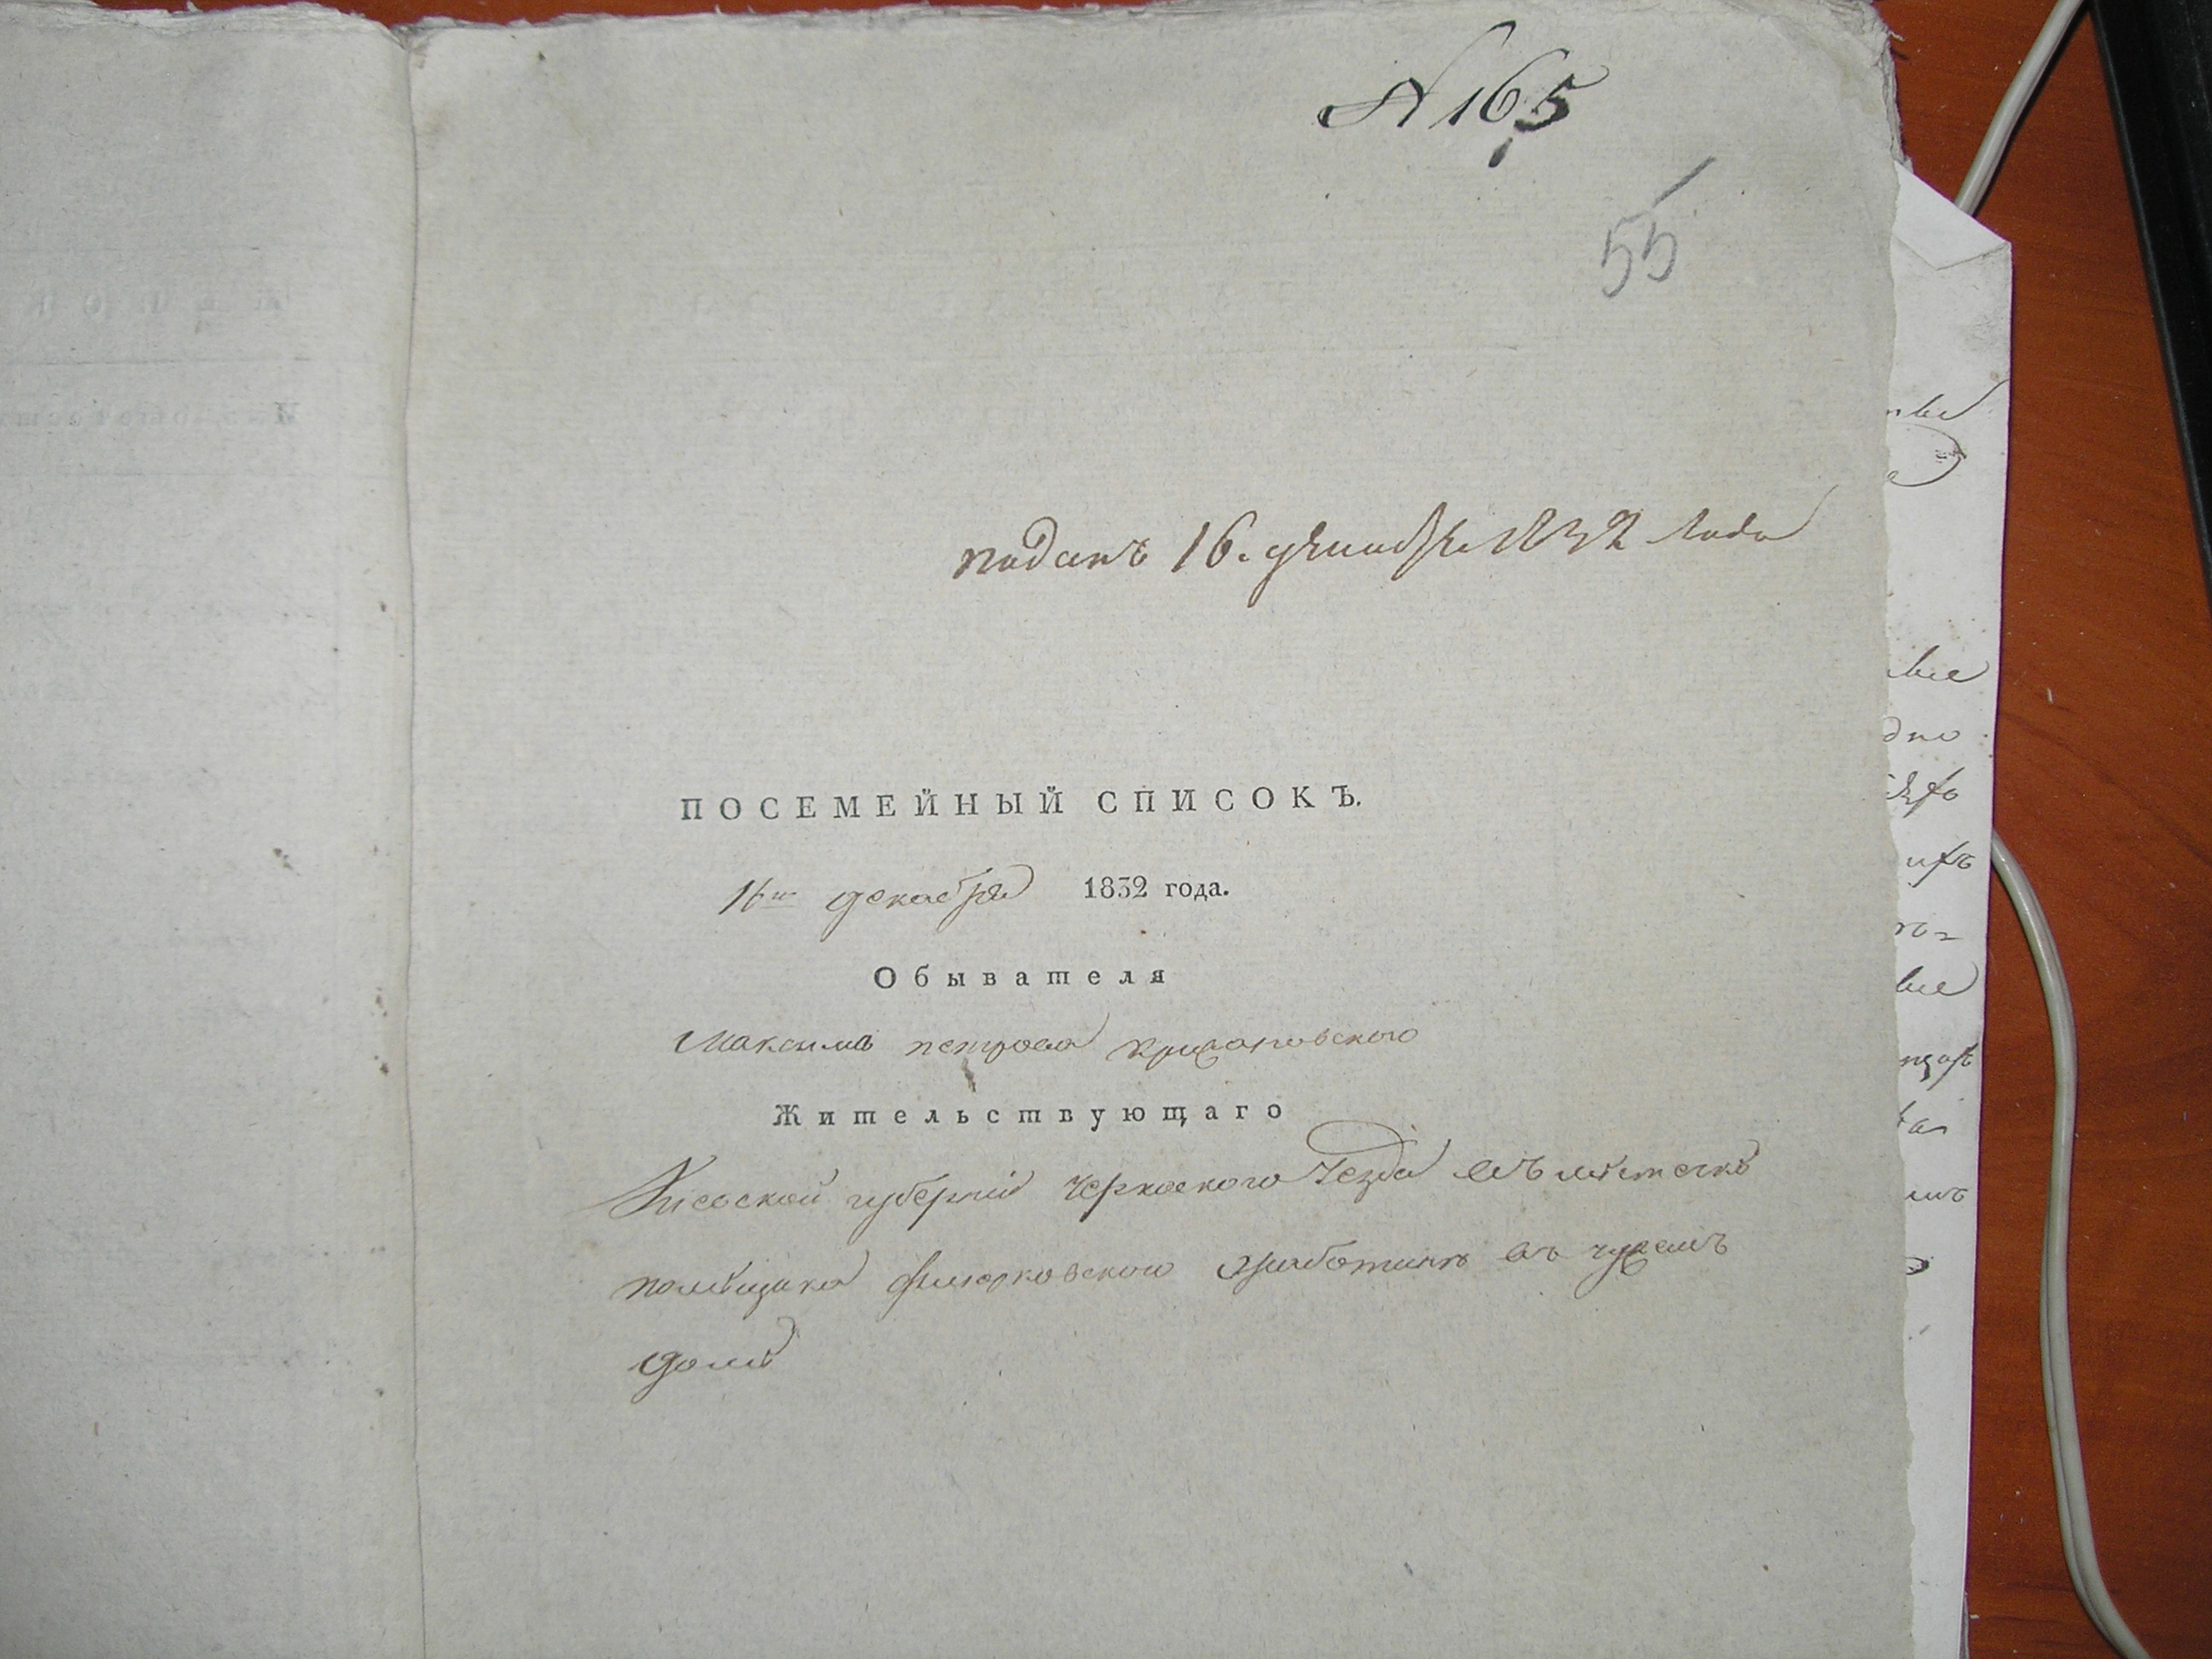 № 165
55
поданъ 16. декабря 1832 года
ПОСЕМЕЙНЫЙ СПИСОКЪ.
16го декабря 1832 года.
Обывателя
Максима петрова
Жительствующаго
Киевской губернии черкаского уезда въ местечке
помещика въ чужомъ
доме